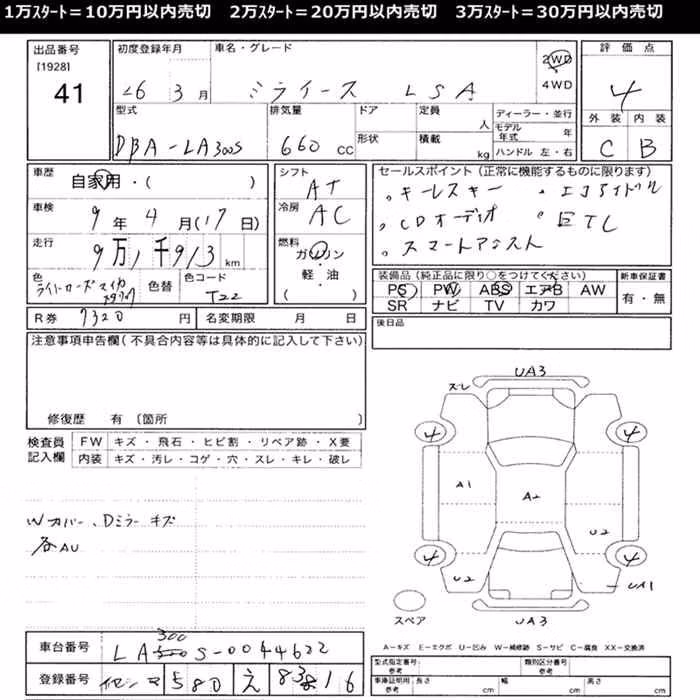 1万ｽﾀｰﾄ＝10万円以内売切　2万ｽﾀｰﾄ＝20万円以内売切　3万ｽﾀｰﾄ＝30万円以内売切
出品番号
[1928]
41
初度登録年月
26 3月
車名・グレード
ミライース LSA
2WD
4WD
評価点
4
外装 内装
C B
型式
DBA-LA300S
排気量
660 CC
ドア
形状
定員
人
積載
kg
ディーラー・並行
モデル年式 年
ハンドル 左・右
車歴
自家用・( )
車検
9年4月(17日)
走行
9万1千913km
色
ライトローズマイカ
色替
色コード
T22
シフト
AT
冷房
AC
燃料
ガソリン
軽・油
( )
セールスポイント（正常に機能するものに限ります）
・キーレスキー ・エコアイドル
・CDオーディオ ・ETC
・スマートアシスト
装備品（純正品に限り○をつけてください）
PS PW ABS エアB AW
SR ナビ TV カワ
新車保証書
有・無
R券 7320円
名変期限 月 日
後日品
注意事項申告欄（不具合内容等は具体的に記入して下さい）
修復歴 有〔箇所
検査員記入欄
FW キズ・飛石・ヒビ割・リペア跡・X要
内装 キズ・汚レ・コゲ・穴・スレ・キレ・破レ
Wカバー、Dミラーキズ
各AU
スレ
UA3
4
4
A1
A2
U2
4
4
U2
UA1
スペア
UA3
A＝キズ E＝エクボ U＝凹み W＝補修跡 S＝サビ C＝腐食 XX＝交換済
車台番号
LA300S-0044622
登録番号
580 え 8316
型式指定番号:
類別区分番号:
車庫証明用参考
長さ cm
幅 cm
高さ cm